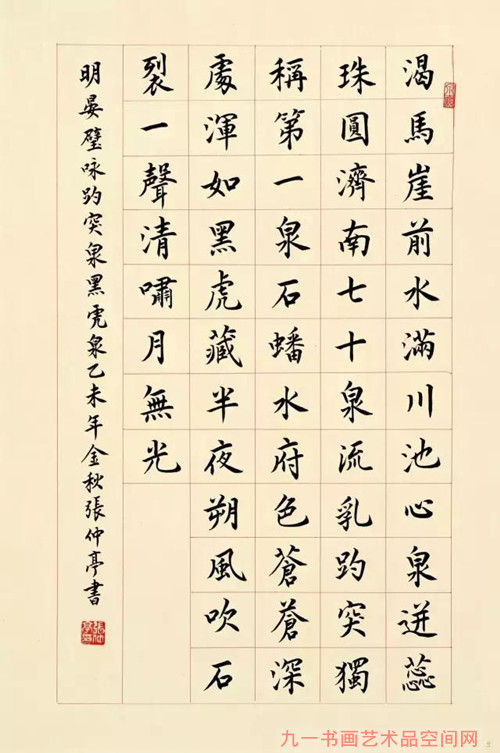 渴馬崖前水滿川池心泉迸蕊
珠圓濟南七十泉流乳趵突獨
稱第一泉石蟠水府色蒼蒼深
處渾如黑虎藏半夜朔風吹石
裂一聲清嘯月無光
明晏璧咏趵突泉黑虎泉乙未年金秋張仲亭書
九一书画艺术品空间网